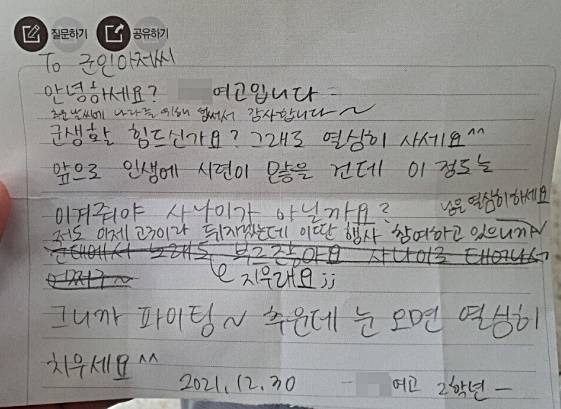 질문하기 공유하기
To 군인아저씨
안녕하세요? 여고입니다
추운날씨에 나라를 위해 힘써서 감사합니다~
군생활 힘드신가요? 그래도 열심히 사세요^^
앞으로 인생에 시련이 많을 건데 이 정도는
이겨줘야 사나이가 아닐까요?
저도 이제 고3이라 뒤지겠는데 이딴 행사 참여하고 있으니까~
님은 열심히 하세요
군대에서 노래도 부르잖아요 사나이로 태어나서
어쩌구~
지우래요;;
그니까 파이팅~ 추운데 눈 오면 열심히
치우세요^^
2021.12.30 - 여고 2학년 -